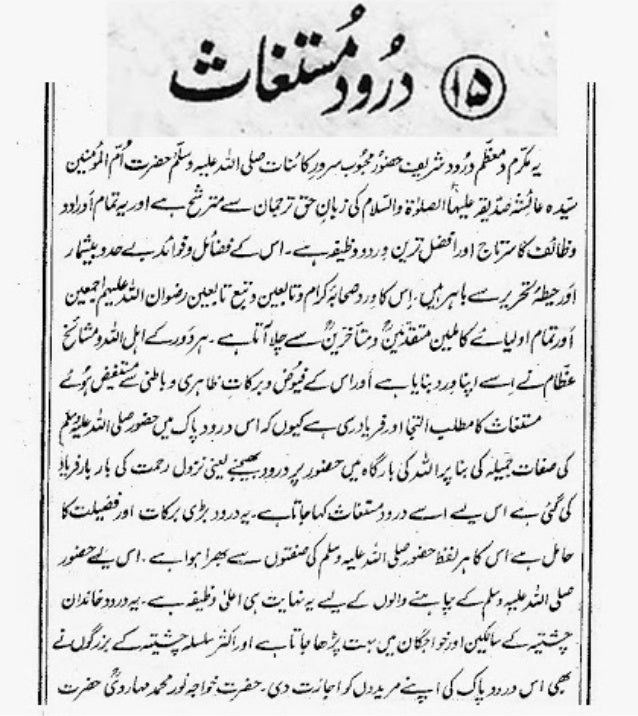 ۱۵ درُود مُستغاث
یہ مکرّم و معظّم درُود شریف حضورِ محبُوب سرورِ کائنات صلی اللہ علیہ وسلّم حضرت اُمّ المؤمنین
سیّدہ عائشہ صدیقہ علیہا الصلوٰۃ والسّلام کی زبانِ حق ترجمان سے مترشّح ہے اور یہ تمام اَوراد و
وظائف کا سرتاج اور افضل ترین وِرد و وظیفہ ہے۔ اس کے فضائل و فوائد بے حد و بیشمار
اَور حیطۂ تحریر سے باہر ہیں۔ اِس کا وِرد صحابۂ کرام و تابعین و تبع تابعین رضوان اللہ علیہم اجمعین
اَور تمام اولیائے کاملین متقدّمین و متأخّرین سے چلا آتا ہے۔ ہر دَور کے اہل اللہ و مشائخ
عظام نے اِسے اپنا وِرد بنایا ہے اَور اس کے فیُوض و برکاتِ ظاہری و باطنی سے مستفیض ہُوئے
مستغاث کا مطلب التجا اور فریاد رسی ہے کیوں کہ اس درود پاک میں حضور صلی اللہ علیہ وسلم
کی صفات جمیلہ کی بنا پر اللہ کی بارگاہ میں حضور پر درود بھیجنے یعنی نزول رحمت کی بار بار فریاد
کی گئی ہے اس لیے اسے درود مستغاث کہا جاتا ہے۔ یہ درود بڑی برکات اور فضیلت کا
حامل ہے اس کا ہر لفظ حضور صلی اللہ علیہ وسلم کی صفتوں سے بھرا ہوا ہے۔ اس لیے حضور
صلی اللہ علیہ وسلم کے چاہنے والوں کے لیے یہ نہایت ہی اعلیٰ وظیفہ ہے۔ یہ درود خاندان
چشتیہ کے سالکین اور خواجگان میں بہت پڑھا جاتا ہے اور اکثر سلسلہ چشتیہ کے بزرگوں نے
بھی اس درود پاک کی اپنے مریدوں کو اجازت دی۔ حضرت خواجہ نور محمد مہارویؒ حضرت